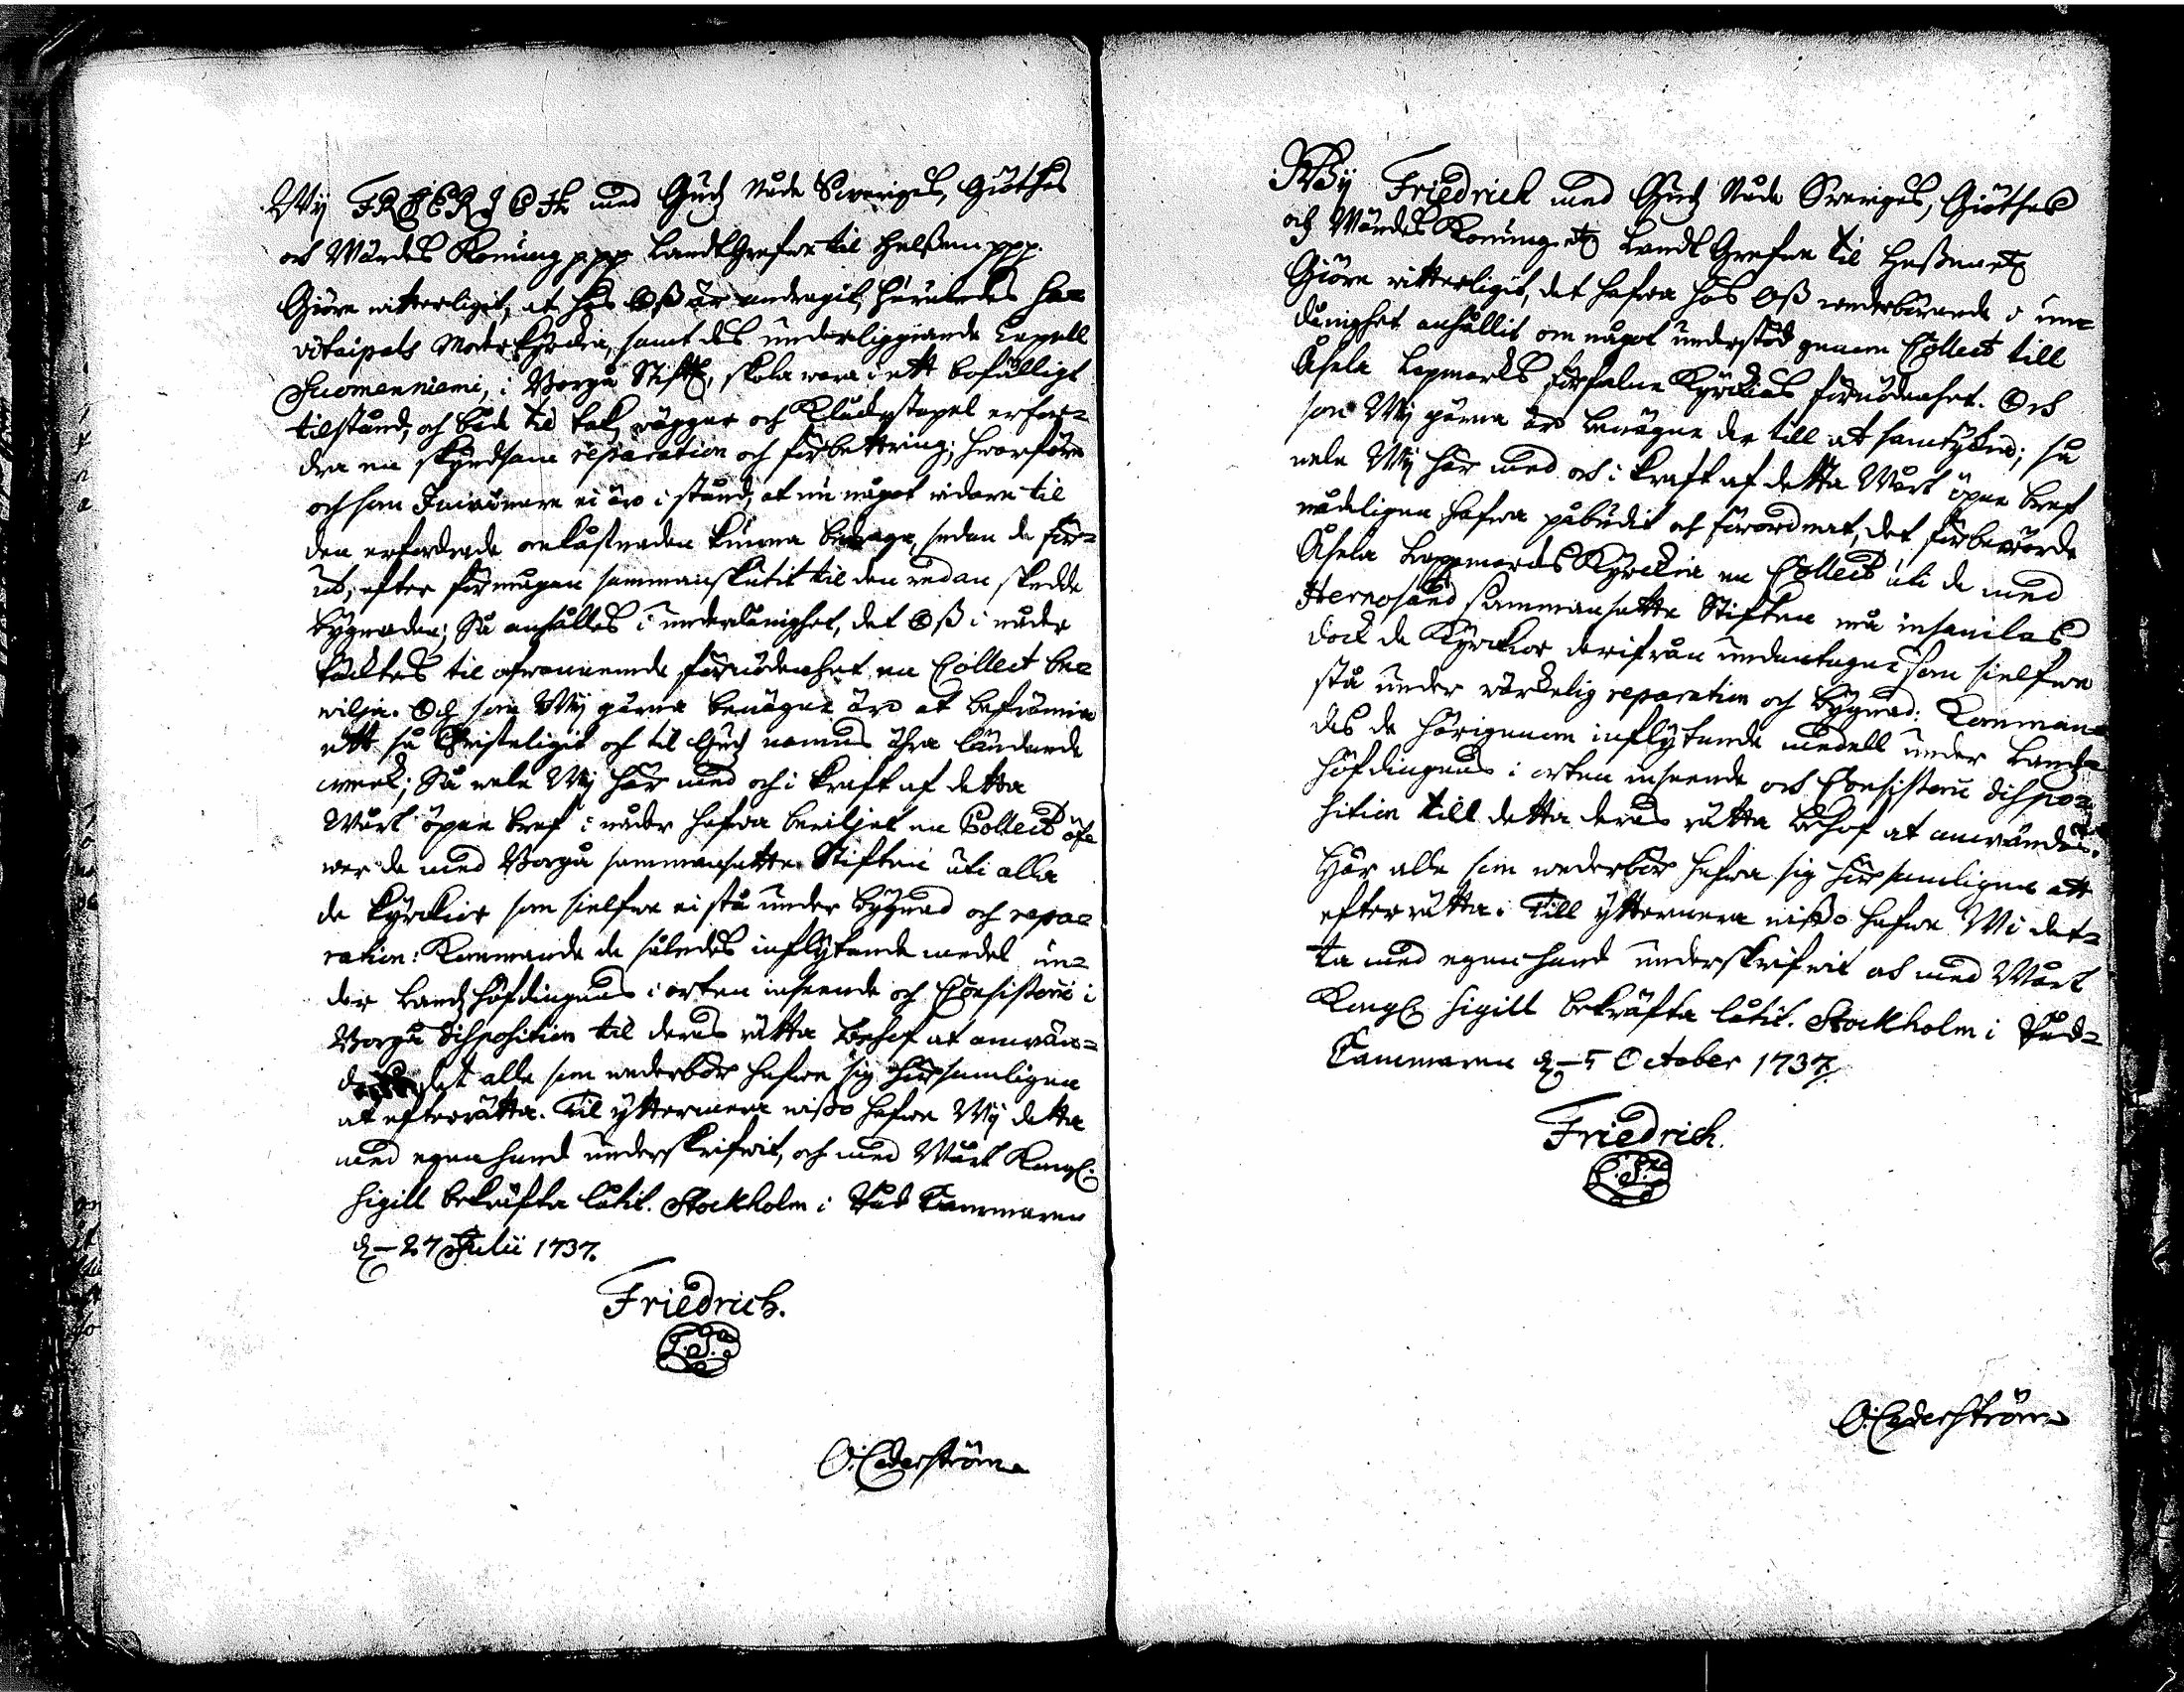 Wij FRIEDRICH med Gudz Nåde Sweriges, Giöthes
och Wändes Konung ppp Landtgrefwe til Hessen ppp.
Giöre witterligit, at hos Oß är andragit, huruledes Sa-
vitaipals Moderkyrckia, samt des underliggiande Capell
Suomenniemi, i Borgå Stifft, skola wara i ett bofälligt
tilstånd, och både til tak, wäggar och Kluckstapel erfor-
dra en skyndsam reparation och förbettring; hwarföre
och som Inwånarne ei äro i stånd, at nu något widare til
den erfordrade omkåstnaden kunna bedraga, sedan de för-
ut, efter förmågan sammanskutit til den redan skedde
bygnaden; Så anhålles i underdånighet, det Oß i nåder
täcktes til ofwannemde förnödenhet en Collect be-
wilja. Och som Wij gärna benägne äro at befrämia
ett så Christeligit och til Gudz namns ähra länderde
werck; Så wele Wij här med och i kraft af detta
Wårt öpna bref i nåder hafwa beviljat en Collect öf-
wer de med Borgå sammansatte Stiften uti alla
de kyrckior som sielfwa ei stå under bygnad och repa-
ration: Kommande de således inflytande medel un-
der Landzhöfdingens i orten inseende och Consistorii i
Borgå disposition til deras rätta behof at anwän-
das det alle som wederbör hafwa sig hörsamligen
at efterrätta. Til yttermera wißo hafwa Wij detta
med egen hand underskrifwit, och med Wårt Kongl:
Sigill bekräfta låtit. Stockholm i Råd Cammaren
d. 27 Julii 1737.
Friedrich.
L.S.
O: Cederström
Wij Friedrich med Gudz Nåde Sweriges, Giöthes
och Wändes Konung etc Landt Grefwe til Heßen etc
Giöre witterligit, det hafwa hos Oß wederbörande i un-
dånighet anhållit om något understöd genom Collect till
Åsele Lapmarks förfalne Kyrckias förnödenhet. Och
som Wij gärna äro benägne der till at samtyckia; så
wele Wij här med och i kraft af detta Wårt öpne bref
nådeligen hafwa påbudit och förordnat, det förberörde
Åsele Lappmarcks Kyrckia en Collect uti de med
Hernosand sammansatte Stiften må insamlas,
dock de Kyrckior derifrån undantagne som sielfwa
stå under wärckelig reparation och bygnad: Komman-
des de härigenom inflytande medell under Landz-
höfdingens i orten inseende och Consistorii dispo-
sition till detta deras rätta behof at användas.
Här alle som wederbör hafwa sig hörsamligen att
efterrätta. Till yttermera wißo hafwa Wi det-
ta med egen hand underskrifwit och med Wårt
Kongl Sigill bekräfta låtit. Stockholm i Råd-
Cammaren d. 5 October 1737.
Friedrich.
L.S.
O: Cederström